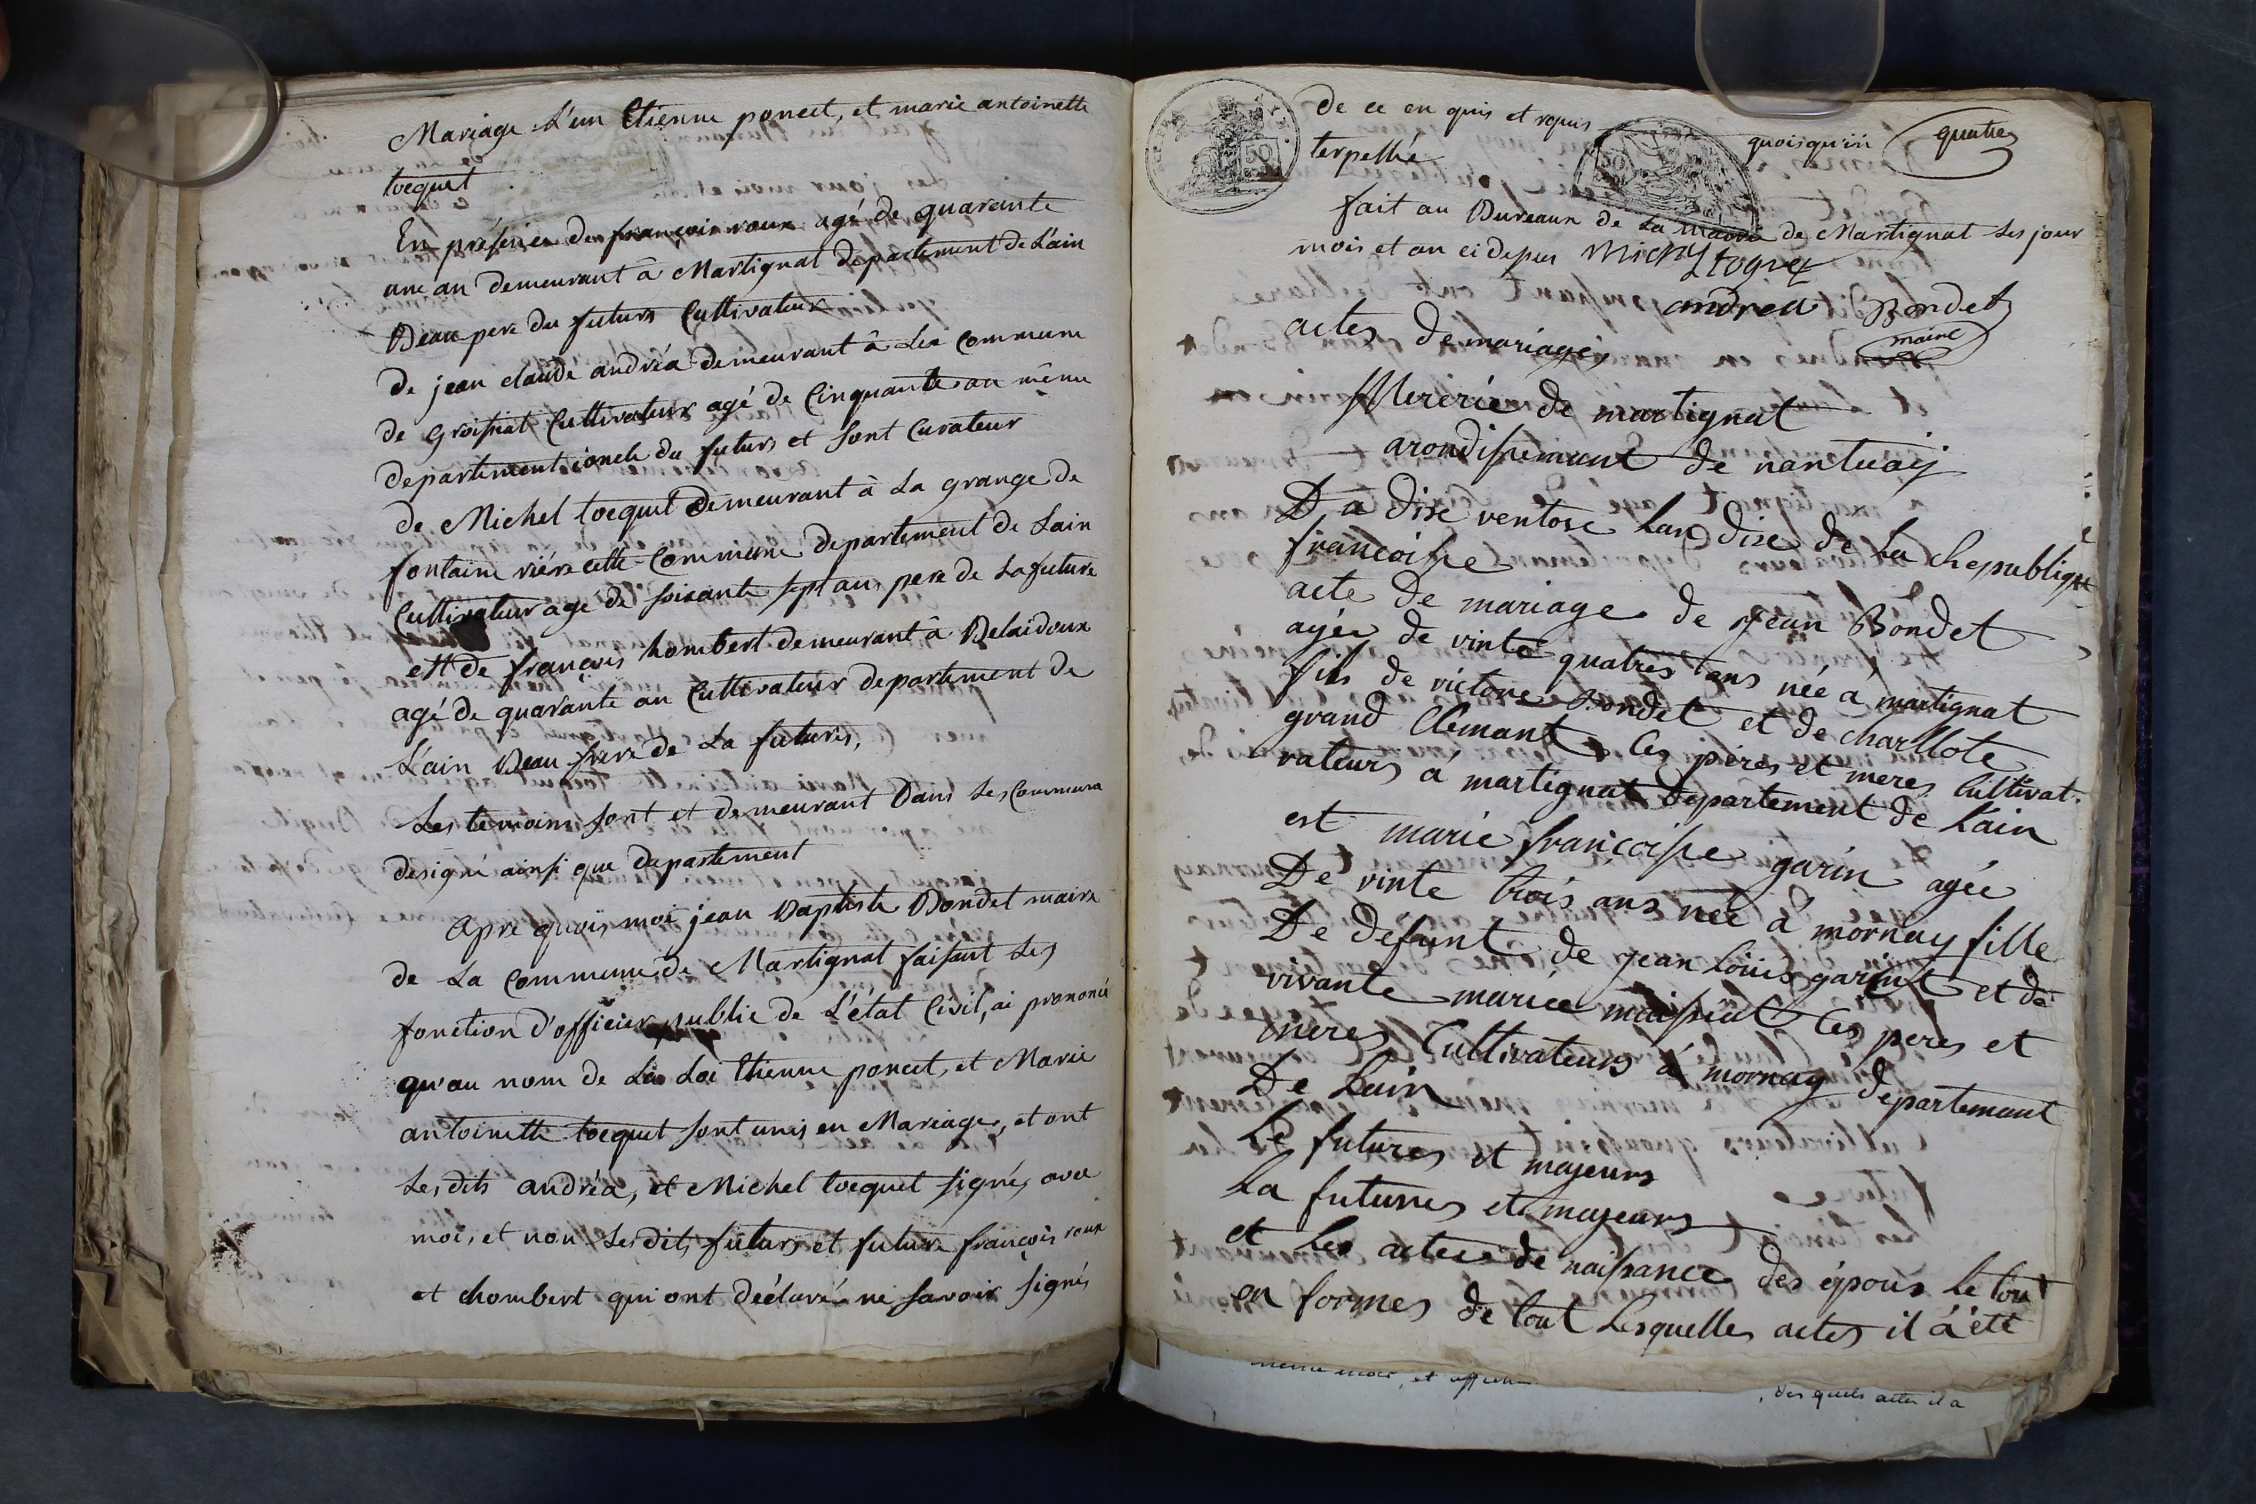 Mariage L'un Etienne poncet, et marie antoinette
tocquet
En présence de françois roux agé de quarante
un an demeurant à Martignat departement de L'ain
Beau pere du futurs Cultivateur
de jean claude andréa demeurant à La Commune
de groissiat Cultivateur agé de Cinquante an même
departement oncle du futurs et sont Curateur
de Michel tocquet demeurant à La grange de
fontaine rière cette Commune departement de Lain
Cultivateur age de soixante sept an pere de La future
ett de françois hombert demeurant à Belaidoux
agé de quarante an Cultivateur departement de
L'ain Beau frere de La futures,
Les temoins sont et demeurant Dans Les Commune
designé ainsi que departement
Apre quoÿ moi jean Baptiste Bondet maire
de La Commune de Martignat faisant Les
fonction d'officier public de L'état Civil, ai prononcé
qu'au nom de La Loi Etienne poncet, et Marie
antoinette tocquet sont unis en Mariage, et ont
Les dits andréa, et Michel tocquet signés avec
moi, et non Les dits futurs et future françois roux
et chombert qui ont déclaré ne savoir signés
de ce en quis et requis quoisqu'in quatre
terpellié
fait au Bureaux de La mairie de Martignat Les jour
mois et an ci depeus Michel toguet
andrea Bondet
maire
actes de mariages
Mererie de martignat
arondissemant de nantuaij
Da dixe ventose Lan dixe de La Republique
francoisse
acte de mariage de Jean Bondet
agée de vinte quatres ans née a martignat
fils de victore Bondet et de charllote
grand Clemant Ces péres et meres Cultivat.
vateurs á martignat departement de Lain
est marie francoisse garin agée
De vinte trois ans née a mornay fille
De defunt de Jean louis garint et de
vivante mariée maissiat Ces peres et
meres Cultivateurs á mornay departemant
De Lain
Le futures et majeurs
La futures et majeurs
et Les actes de naissance des époux Le tout
en formes de tout Lesquelles actes il á été
, des quels actes il a